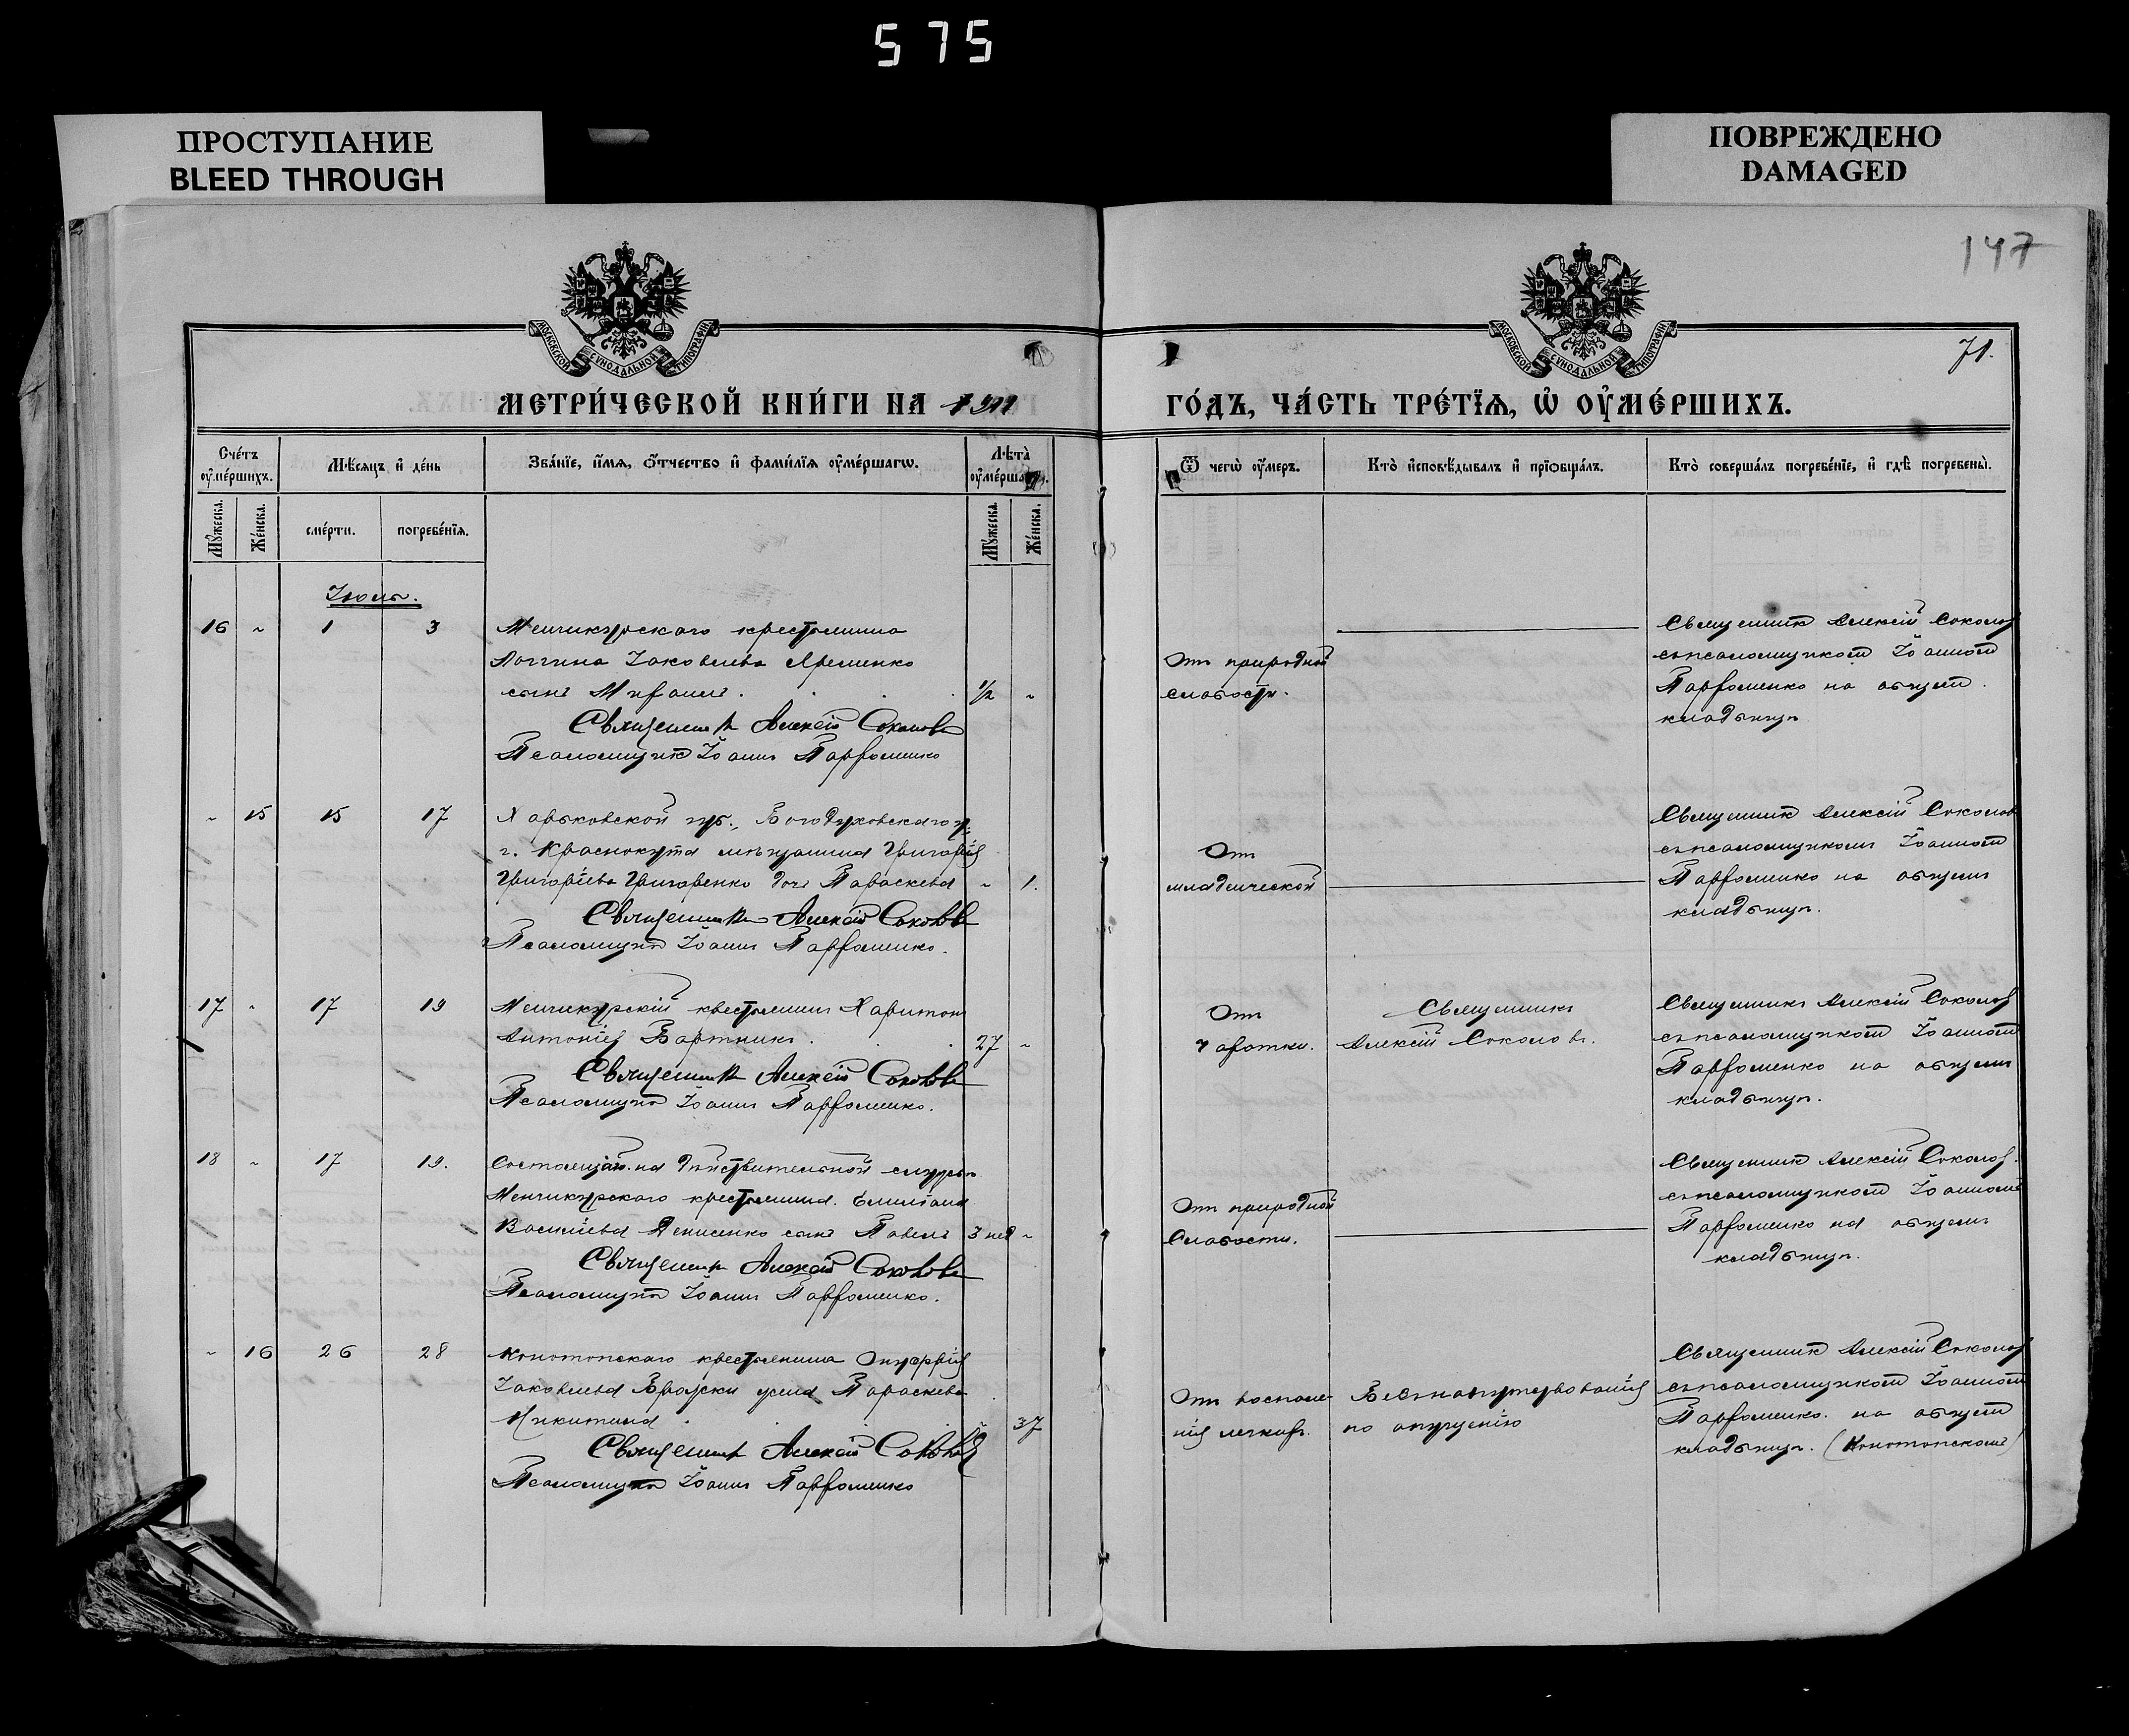 575
ПРОСТУПАНИЕ
BLEED THROUGH
ПОВРЕЖДЕНО
DAMAGED
147
71.
МОСКОВСКОЙ СѴНОДАЛЬНОЙ ТИПОГРАФІИ
МОСКОВСКОЙ СѴНОДАЛЬНОЙ ТИПОГРАФІИ
МЕТРИ́ЧЕСКОЙ КНИ́ГИ НА 1911
ГО́ДЪ, ЧА́СТЬ ТРЕ́ТЇѦ, Ѡ҆ ОУ҆МЕ́РШИХЪ.
Сче́тъ оу҆ме́ршихъ.
Мѣ́сяцъ и҆ де́нь
Зва́нїе, и҆́мѧ, ѻ҆́тчество и҆ фами́лїѧ оу҆ме́ршагѡ.
Лѣ̀та̀ оу҆ме́ршагѡ.
Ѿ чегѡ̀ оу҆́меръ.
Кто̀ и҆сповѣ́дывалъ и҆ прїѡбща́лъ.
Кто̀ соверша́лъ погребе́нїе, и҆ гдѣ̀ погребены̀.
Мꙋ́жеска.
Же́нска.
сме́рти.
погребе́нїѧ.
Мꙋ́жеска.
Же́нска.
Іюль.
16 " 1 3 Менчикурскаго крестьянина
Логгина Іаковлева Яременко
сынъ Мифалиъ . . . 1/2 "
Священникъ Алексій Соколовъ
Псаломщикъ Іоаннъ Парфоменко
Отъ природной
слабости.
Священникъ Алексій Соколов
съ псаломщикомъ Іоанномъ
Парфоменко на общем
кладбищѣ
" 15 15 17 Харьковской губ., Богодуховскаго у.
г. Краснокута мѣщанина Григорія
Григоріева Григоренко дочь Параскева " 1.
Священникъ Алексій Соколовъ
Псаломщикъ Іоаннъ Парфоменко.
Отъ
младенческой
Священникъ Алексій Соколовъ
съ псаломщикомъ Іоанномъ
Парфоменко на общемъ
кладбищѣ.
17 " 17 19 Менчикурскій крестьянинъ Харитонъ
Антоніев Бортникъ . . . 27 "
Священникъ Алексій Соколовъ
Псаломщикъ Іоаннъ Парфоменко.
Отъ
чахотки.
Священникъ
Алексій Соколовъ.
Священникъ Алексій Соколов
съ псаломщикомъ Іоанномъ
Парфоменко на общемъ
кладбищѣ.
18 " 17 19. Состоящаго на дѣйствительной службѣ
Менчикурскаго крестьянина Емиліана
Василіева Денисенко сынъ Павелъ 3 нед "
Священникъ Алексій Соколовъ
Псаломщикъ Іоаннъ Парфоменко.
Отъ природной
Слабости.
Священникъ Алексій Соколов.
съ псаломщикомъ Іоанномъ
Парфоменко на общемъ
кладбищѣ.
" 16 26 28 Конотопскаго крестьянина Онуфрія
Іаковлева жена Параскева
Никитина . . . " 37
Священникъ Алексій Соколовъ
Псаломщикъ Іоаннъ Парфоменко
Отъ воспале-
нія легкихъ.
Безъ напутствованія
по опущенію
Священникъ Алексій Соколов
съ псаломщикомъ Іоанномъ
Парфоменко на общем
кладбищѣ. (Конотопскомъ)